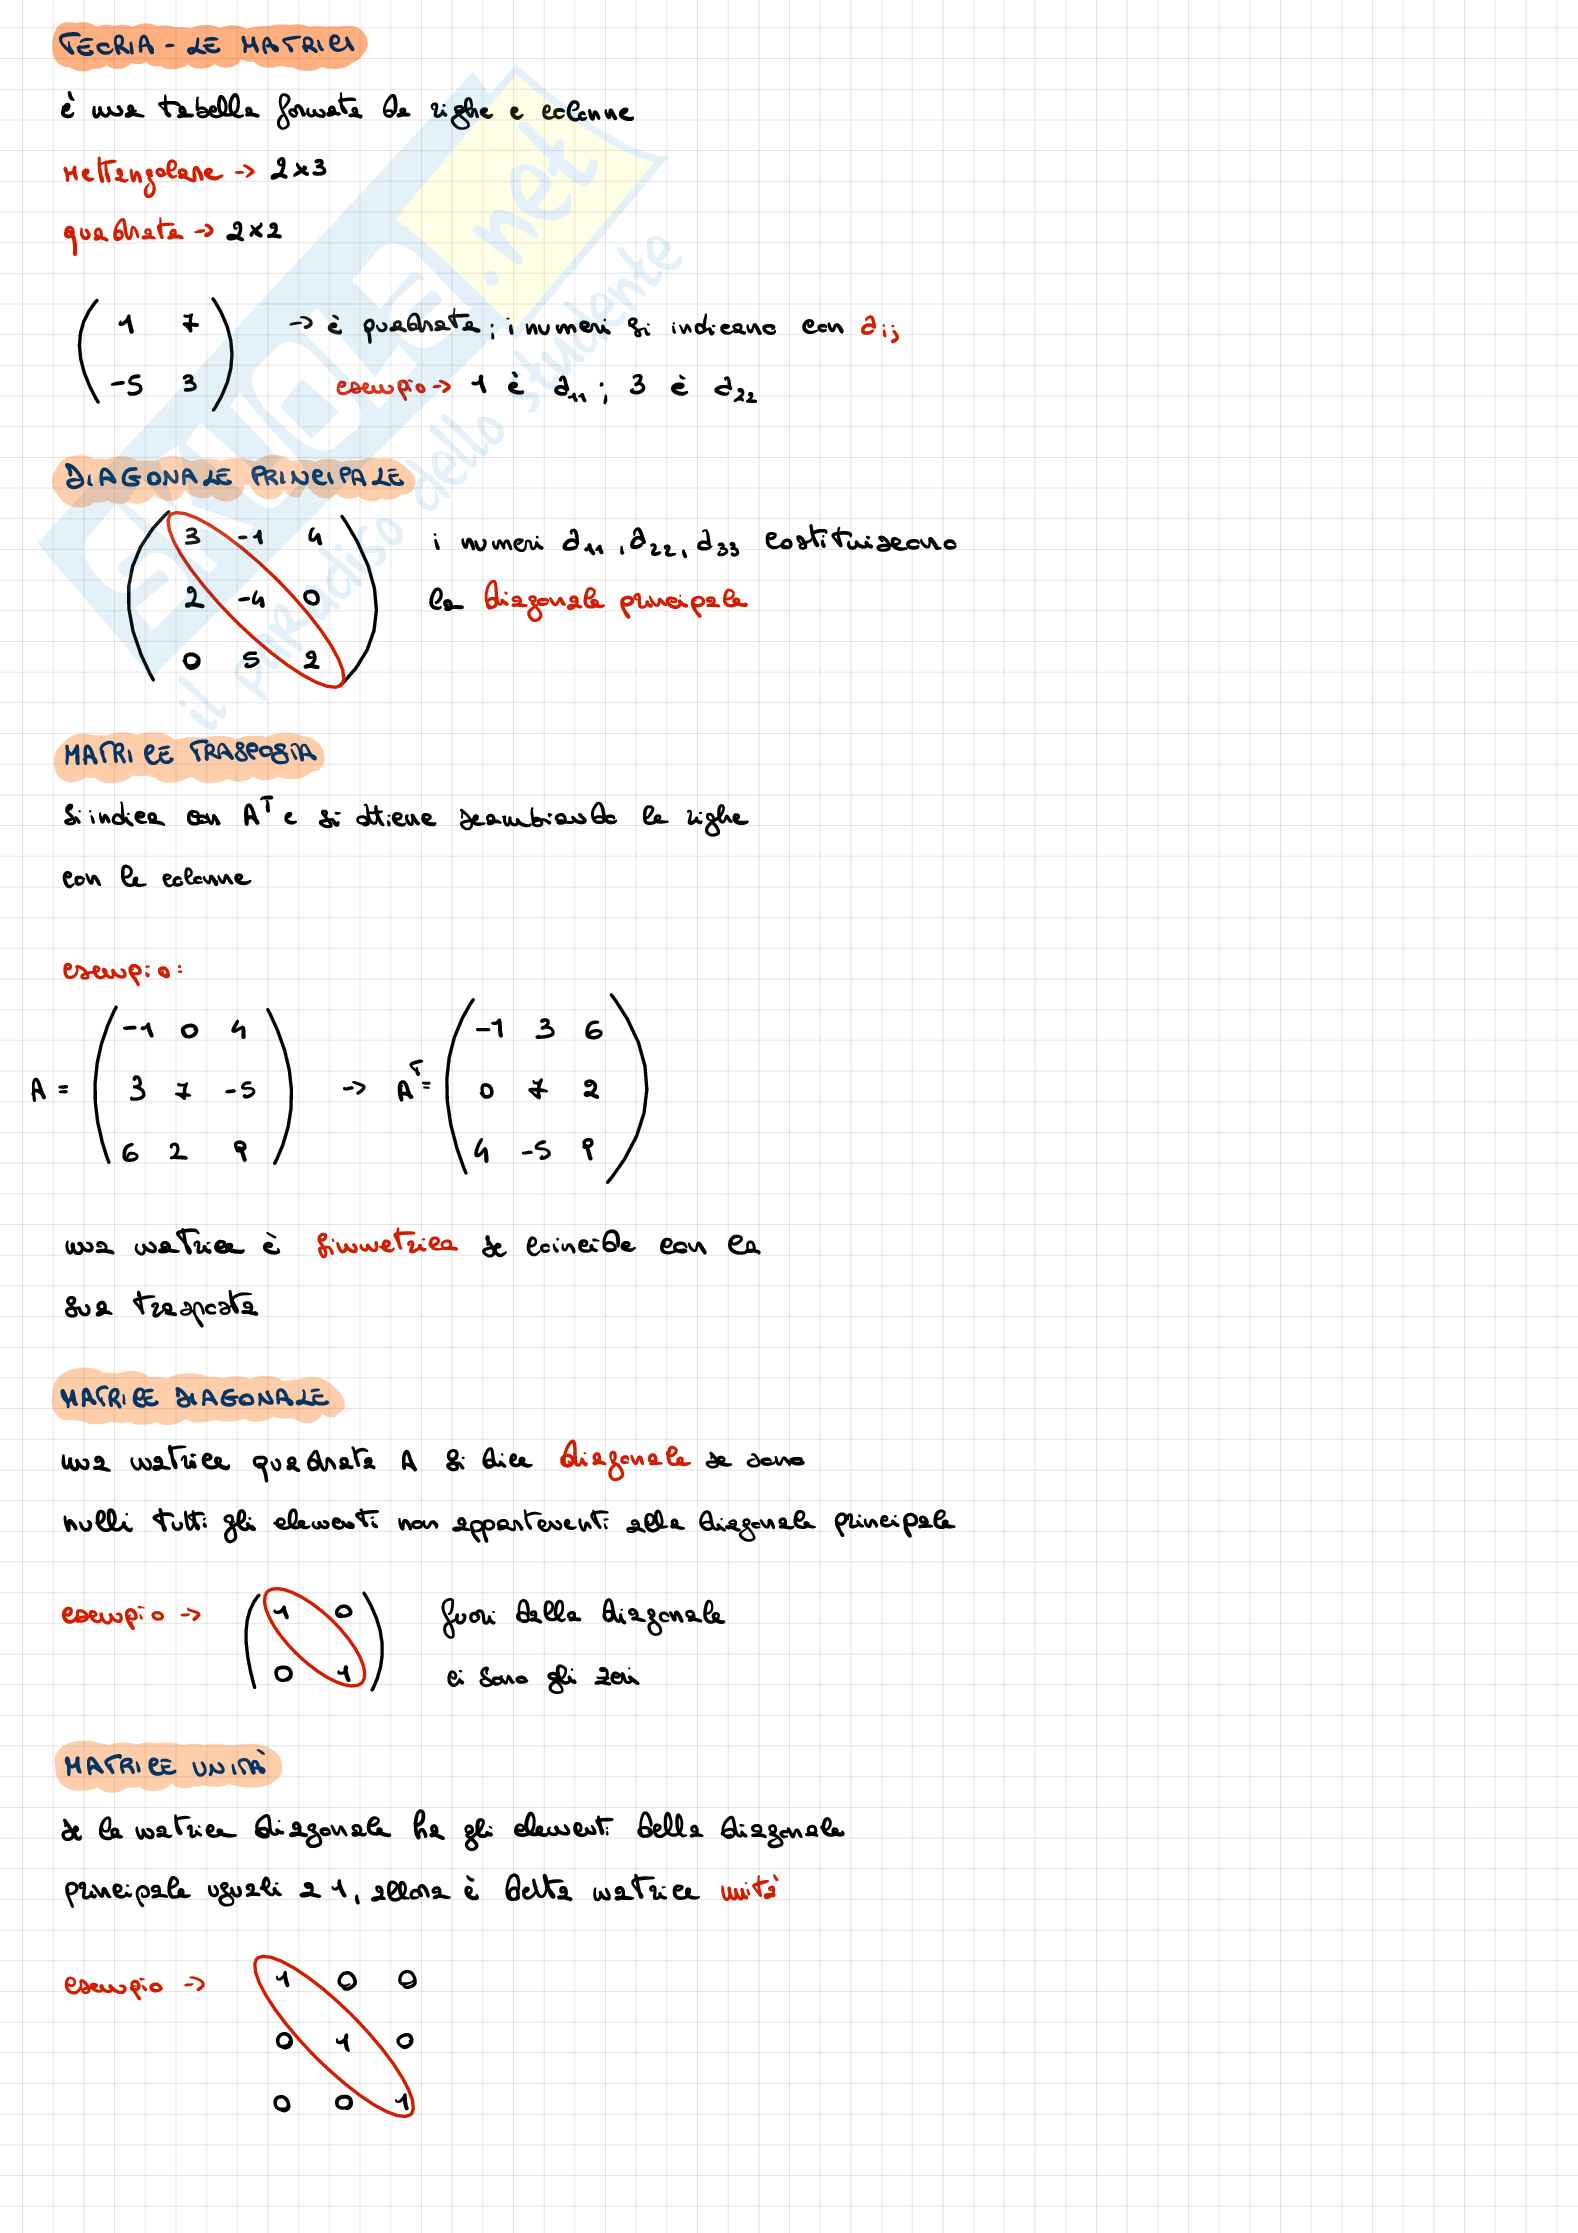 TEORIA - LE MATRICI
è una tabella formata da righe e colonne
rettangolare -> 2x3
quadrata -> 2x2
1 7 -> è quadrata; i numeri si indicano con aij
-5 3 esempio -> 1 è a11; 3 è a22
DIAGONALE PRINCIPALE
3 -1 4 i numeri a11, a22, a33 costituiscono
2 -4 0 la diagonale principale
0 5 2
MATRICE TRASPOSTA
si indica con A^T e si ottiene scambiando le righe
con le colonne
esempio:
-1 0 4 -1 3 6
A = 3 7 -5 -> A^T = 0 7 2
6 2 9 4 -5 9
una matrice è simmetrica se coincide con la
sua trasposta
MATRICE DIAGONALE
una matrice quadrata A si dice diagonale se sono
nulli tutti gli elementi non appartenenti alla diagonale principale
esempio -> 1 0 fuori dalla diagonale
0 1 ci sono gli zeri
MATRICE UNITÀ
se la matrice diagonale ha gli elementi della diagonale
principale uguali a 1, allora è detta matrice unità
esempio -> 1 0 0
0 1 0
0 0 1
SKUOLA.net
il paradiso dello studente